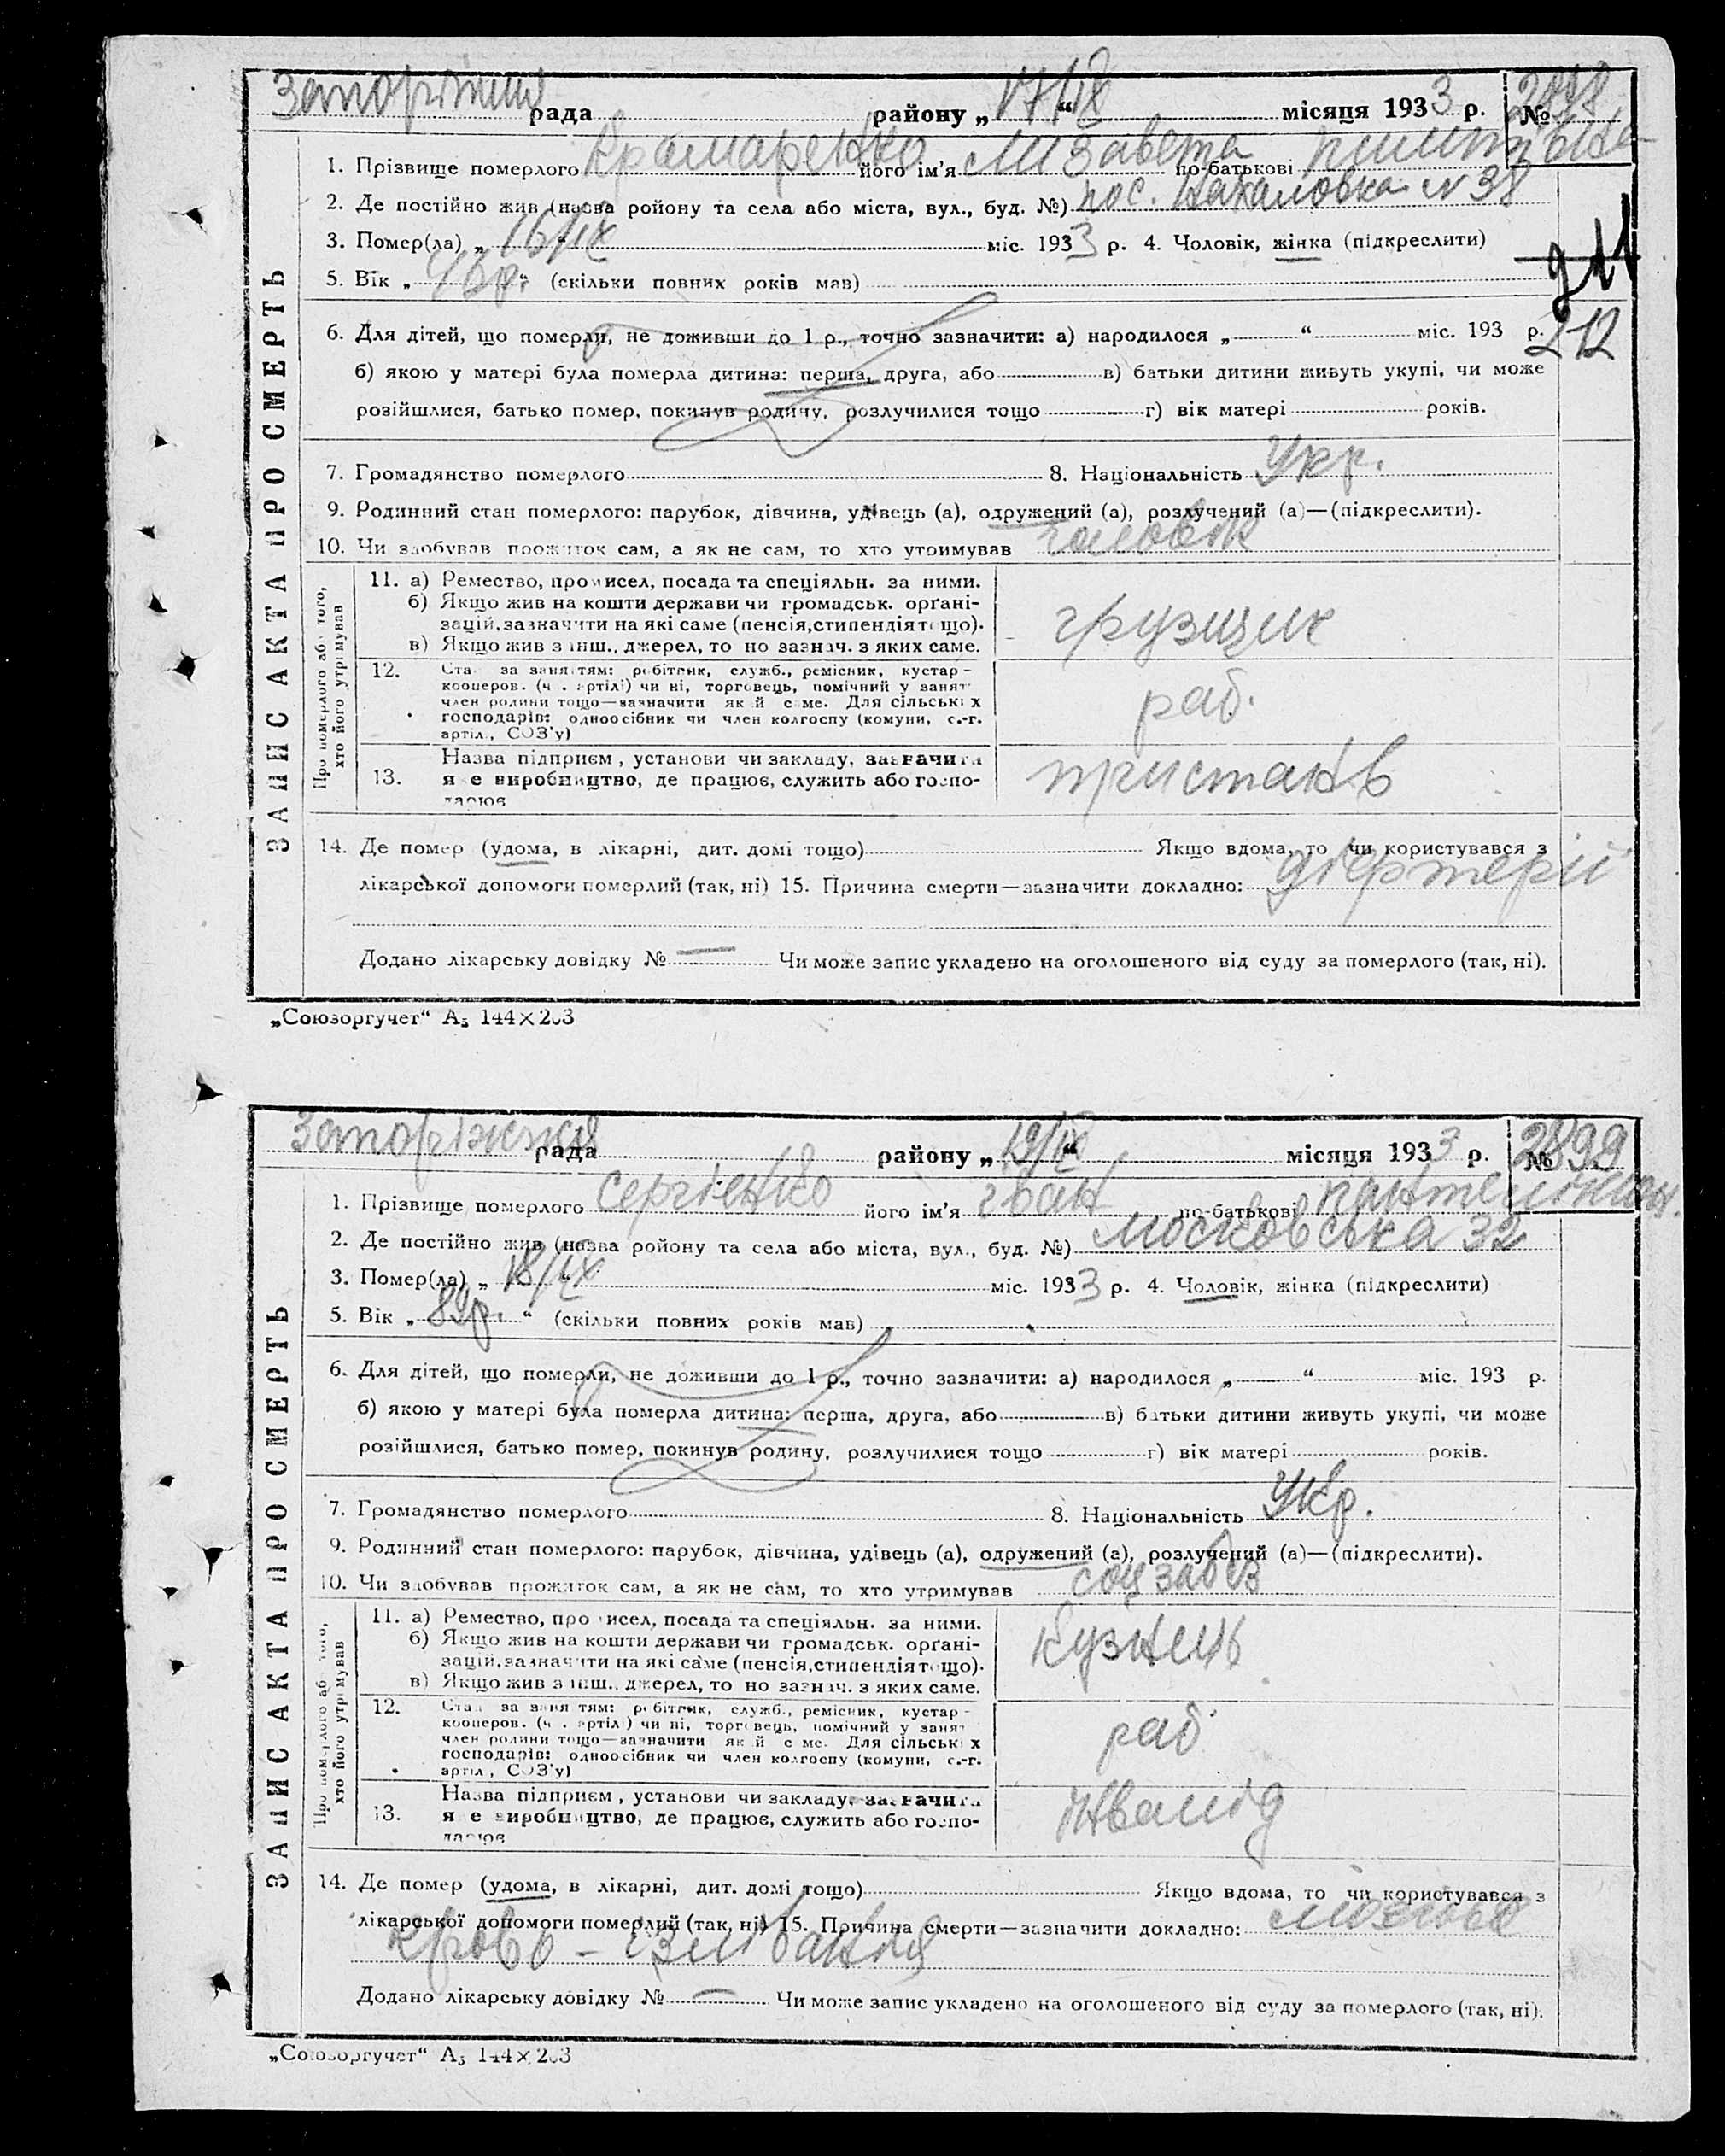 рада району „17/ІХ“ місяця 1933 р. № 2898
ЗАПИС АКТА ПРО СМЕРТЬ
1. Прізвище померлого Крамаренко його ім'я Лизавета по-батькові
2. Де постійно жив (назва ройону та села або міста, вул., буд. №) пос. Нахаловка N 38
3. Помер(ла) „16/ІХ“ міс. 1933 р. 4. Чоловік, жінка (підкреслити)
5. Вік „ “ (скільки повних років мав)
212
6. Для дітей, що померли, не доживши до 1 р., точно зазначити: а) народилося „ “ міс. 193 р.
б) якою у матері була померла дитина: перша, друга, або в) батьки дитини живуть укупі, чи може
розійшлися, батько помер, покинув родину, розлучилися тощо г) вік матері років.
7. Громадянство померлого 8. Національність Укр.
9. Родинний стан померлого: парубок, дівчина, удівець (а), одружений (а), розлучений (а)—(підкреслити).
10. Чи здобував прожиток сам, а як не сам, то хто утримував чоловік
Про померлого або того, хто його утримував
11. а) Ремество, промисел, посада та спеціяльн. за ними.
б) Якщо жив на кошти держави чи громадськ. орґані-
зацій, зазначити на які саме (пенсія, стипендія тощо).
в) Якщо жив з інш., джерел, то но зазнач. з яких саме.
грузщик
12. Стан за заняттям: робітник, служб., ремісник, кустар-
кооперов. (ч. артілі) чи ні, торговець, помічний у занят
член родини тощо—зазначити який саме. Для сільських
господарів: одноосібник чи член колгоспу (комуни, с.-г.
артіл., СОЗ'у)
раб.
13. Назва підприєм., установи чи закладу, зазначити
яке виробництво, де працює, служить або госпо-
дарює
пристань
14. Де помер (удома, в лікарні, дит. домі тощо) Якщо вдома, то чи користувався з
лікарської допомоги померлий (так, ні) 15. Причина смерти—зазначити докладно: діфтерії
Додано лікарську довідку № — Чи може запис укладено на оголошеного від суду за померлого (так, ні).
„Союзоргучет“ А₅ 144×203
Запоріжжя рада району „19/ІХ“ місяця 1933 р. № 2899
ЗАПИС АКТА ПРО СМЕРТЬ
1. Прізвище померлого Сергієнко його ім'я Іван по-батькові
2. Де постійно жив (назва ройону та села або міста, вул., буд. №) Московська 32
3. Помер(ла) „18/ІХ“ міс. 1933 р. 4. Чоловік, жінка (підкреслити)
5. Вік „89р.“ (скільки повних років мав)
6. Для дітей, що померли, не доживши до 1 р., точно зазначити: а) народилося „ “ міс. 193 р.
б) якою у матері була померла дитина: перша, друга, або в) батьки дитини живуть укупі, чи може
розійшлися, батько помер, покинув родину, розлучилися тощо г) вік матері років.
7. Громадянство померлого 8. Національність Укр.
9. Родинний стан померлого: парубок, дівчина, удівець (а), одружений (а), розлучений (а)—(підкреслити).
10. Чи здобував прожиток сам, а як не сам, то хто утримував соцзабез
Про померлого або того, хто його утримував
11. а) Ремество, промисел, посада та спеціяльн. за ними.
б) Якщо жив на кошти держави чи громадськ. орґані-
зацій, зазначити на які саме (пенсія, стипендія тощо).
в) Якщо жив з інш., джерел, то но зазнач. з яких саме.
кузнець
12. Стан за заняттям: робітник, служб., ремісник, кустар-
кооперов. (ч. артілі) чи ні, торговець, помічний у занят
член родини тощо—зазначити який саме. Для сільських
господарів: одноосібник чи член колгоспу (комуни, с.-г.
артіл., СОЗ'у)
раб.
13. Назва підприєм., установи чи закладу, зазначити
яке виробництво, де працює, служить або госпо-
дарює
інвалід
14. Де помер (удома, в лікарні, дит. домі тощо) Якщо вдома, то чи користувався з
лікарської допомоги померлий (так, ні) 15. Причина смерти—зазначити докладно:
крово-ізлівання
Додано лікарську довідку № — Чи може запис укладено на оголошеного від суду за померлого (так, ні).
„Союзоргучет“ А₅ 144×203